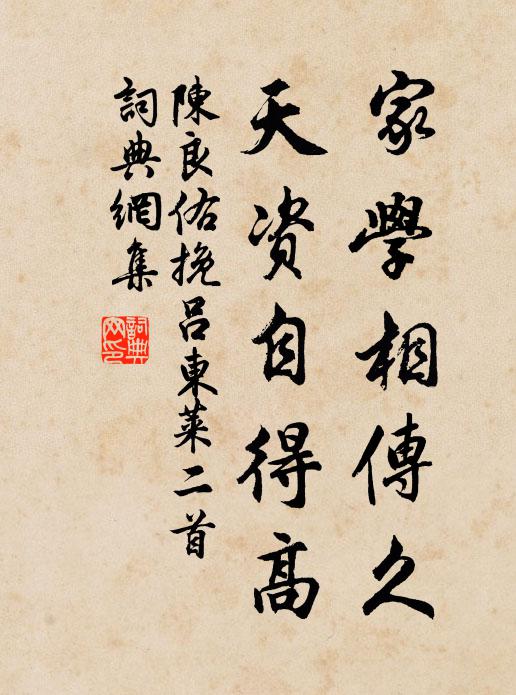 家學相傳久
天资自得高
陳良佑挽呂東萊二首
詞典網集
詞典網印